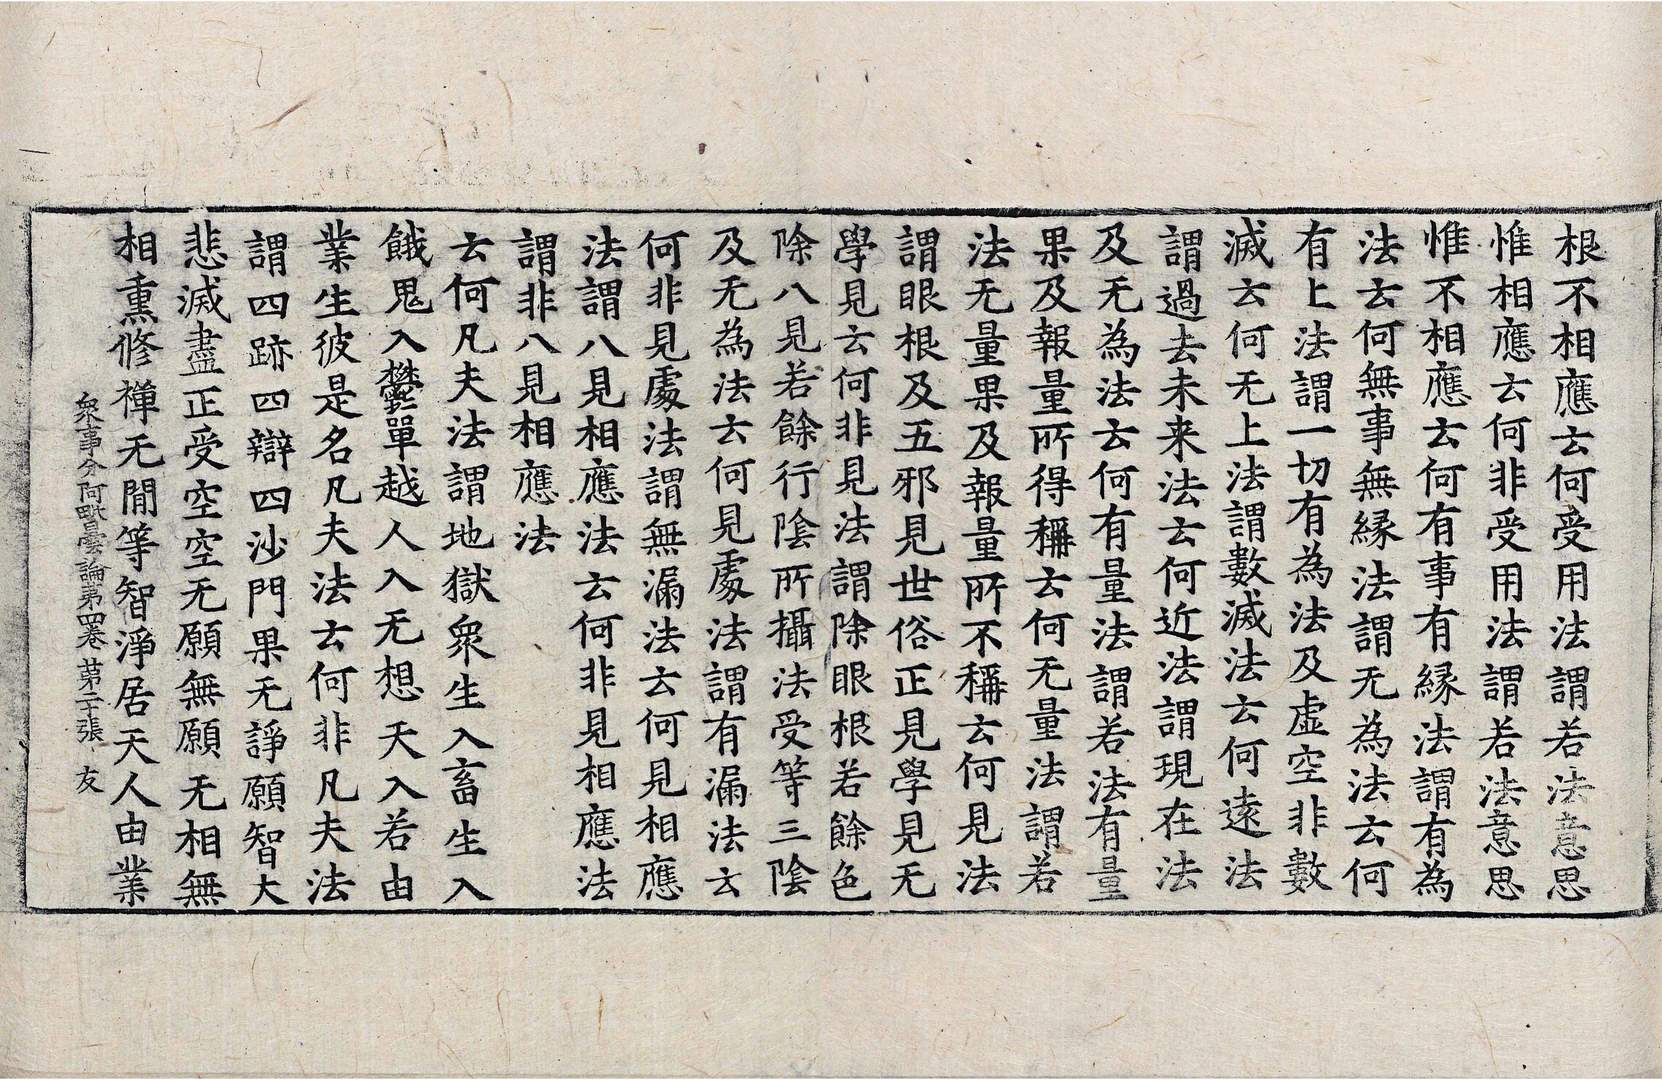 根不相應云何受用法謂若法意思
惟相應云何非受用法謂若法意思
惟不相應云何有事有緣法謂有為
法云何無事無緣法謂无為法云何
有上法謂一切有為法及虛空非數
滅云何无上法謂數滅法云何遠法
謂過去未来法云何近法謂現在法
及无為法云何有量法謂若法有量
果及報量所得稱云何无量法謂若
法无量果及報量所不稱云何見法
謂眼根及五邪見世俗正見學見无
學見云何非見法謂除眼根若餘色
除八見若餘行陰所攝法受等三陰
及无為法云何見處法謂有漏法云
何非見處法謂無漏法云何見相應
法謂八見相應法云何非見相應法
謂非八見相應法
云何凡夫法謂地獄眾生入畜生入
餓鬼入欝單越人入无想天入若由
業生彼是名凡夫法云何非凡夫法
謂四跡四辯四沙門果无諍願智大
悲滅盡正受空空无願無願无相無
相熏修禪无閒等智淨居天人由業
眾事分阿毗曇論第四卷 第二十張 友